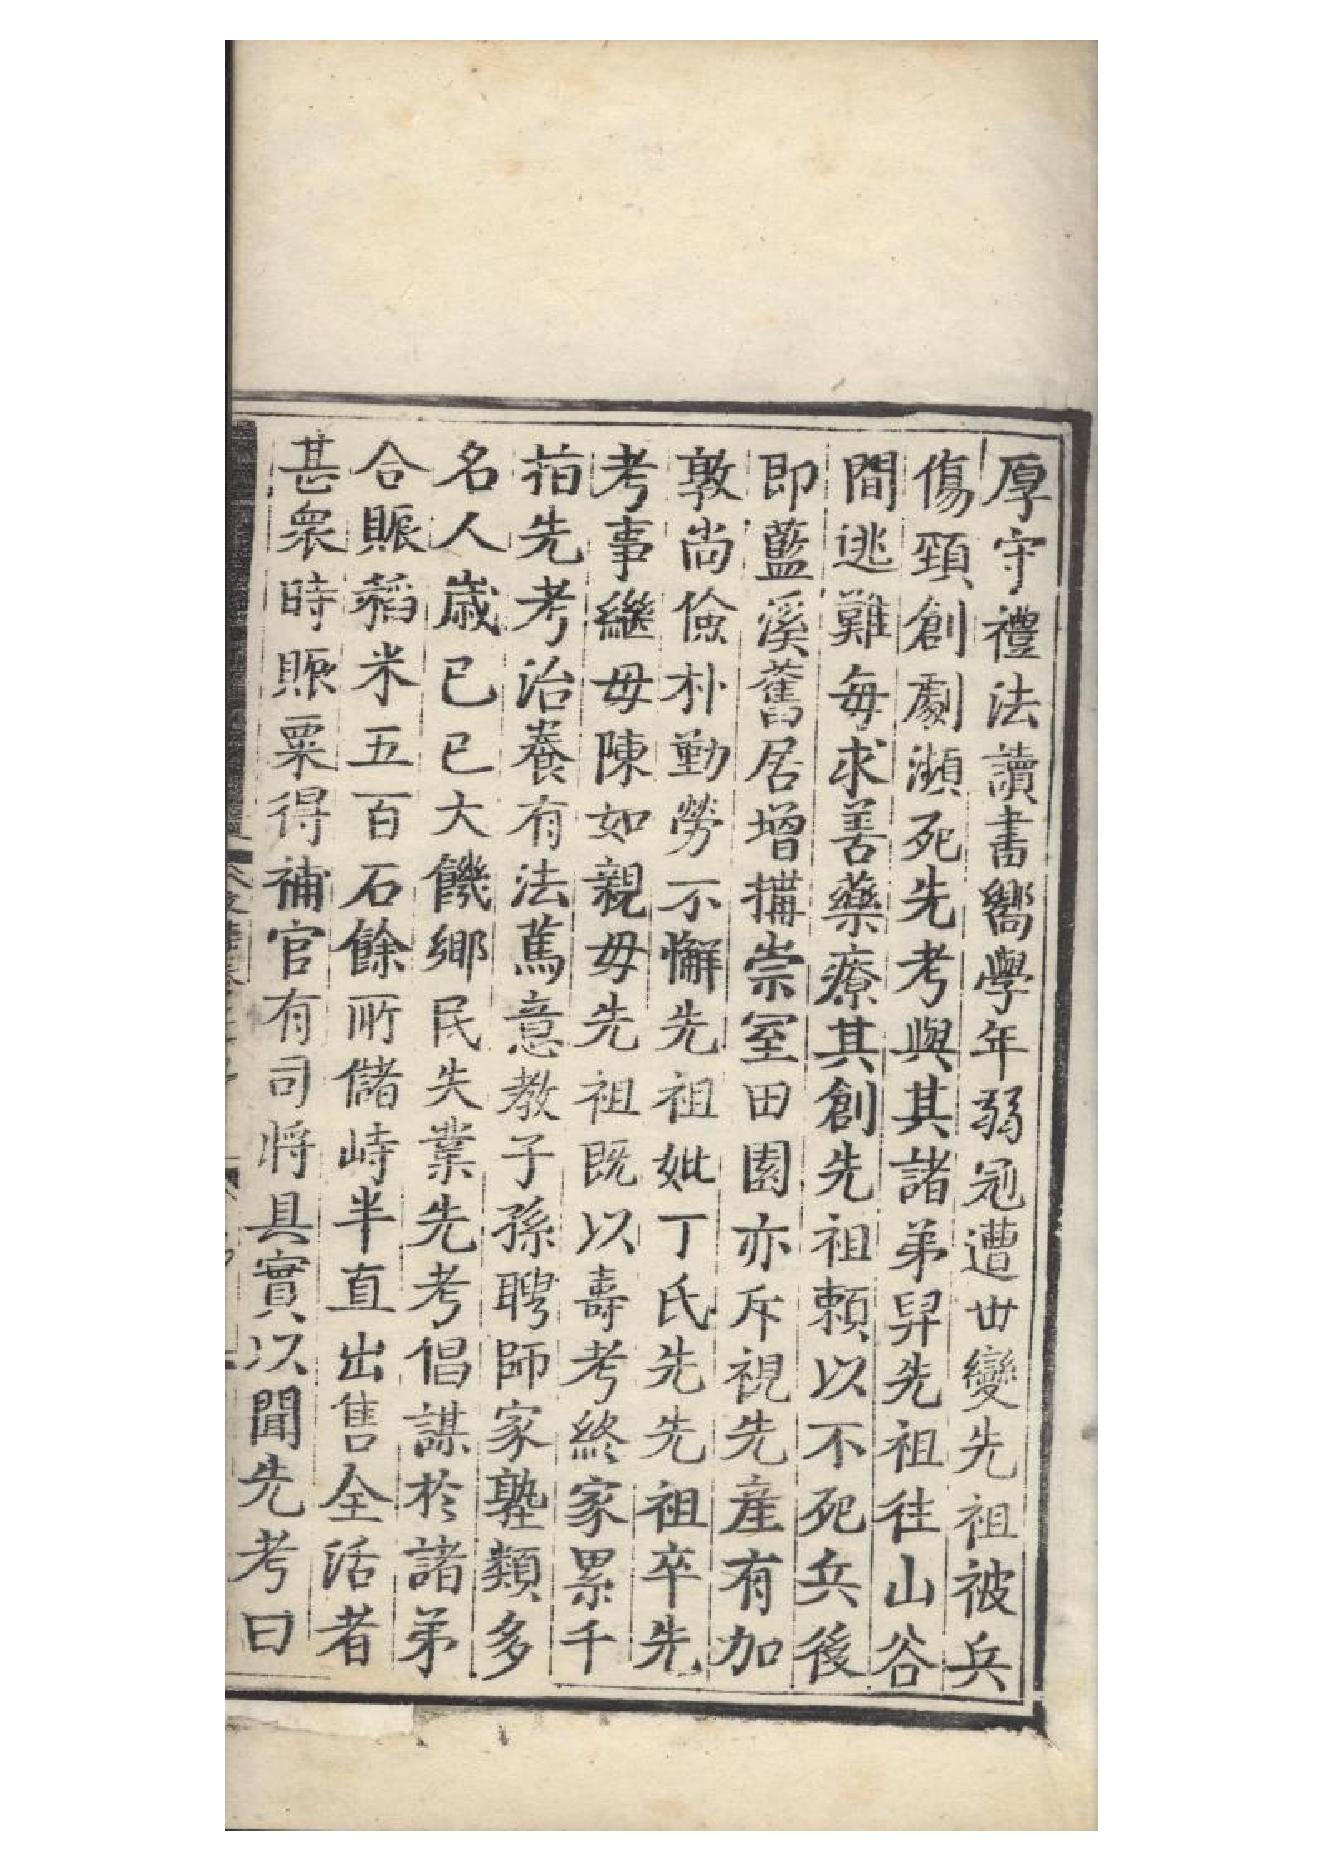 厚守禮法讀書嚮學年弱冠遭世變先祖被兵
傷頸創劇瀕死先考與其諸弟舁先祖往山谷
間逃難每求善藥療其創先祖賴以不死兵後
即藍溪舊居增搆崇室田園亦斥視先産有加
敦尚儉朴勤勞不懈先祖妣丁氏先先祖卒先
考事繼毋陳如親毋先祖既以壽考終家累千
指先考治養有法篤意教子孫聘師家塾類多
名人歲已巳大饑鄉民失業先考倡謀於諸弟
合賑稻米五百石餘所儲峙半直出售全活者
甚衆時賑粟得補官有司將具實以聞先考曰